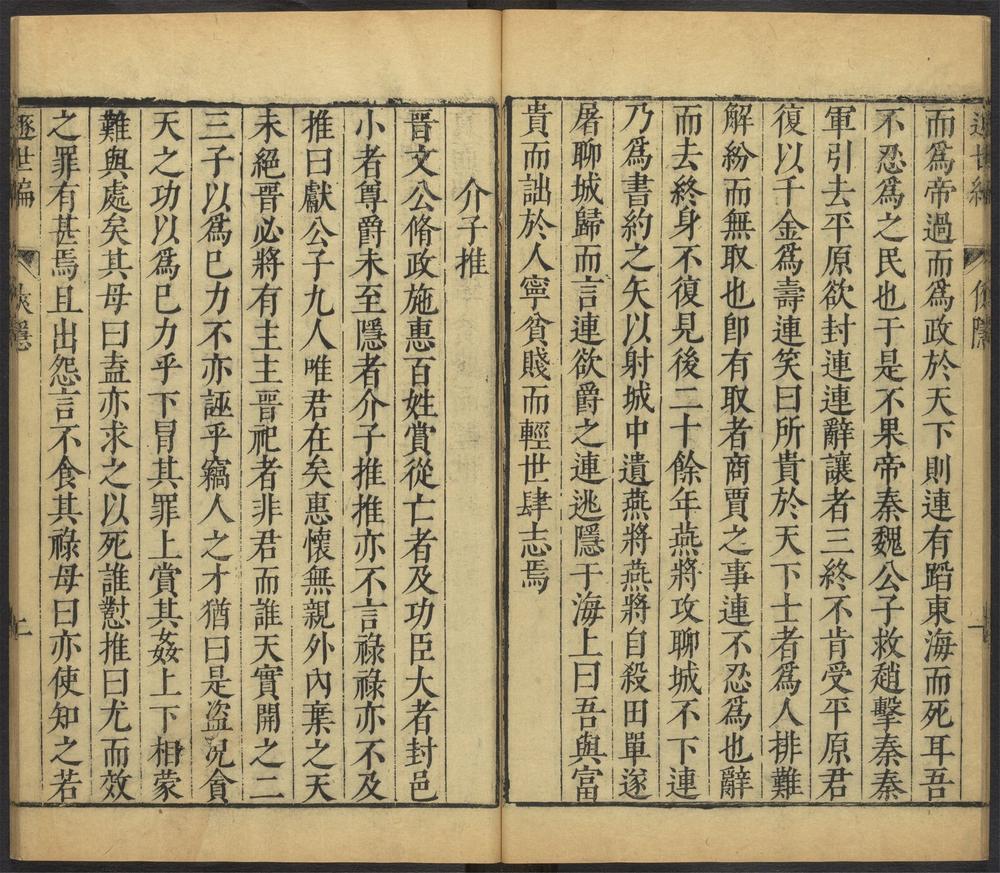 而爲帝過而爲政於天下則連有蹈東海而死耳吾
不忍爲之民也于是不果帝秦魏公子救趙擊秦秦
軍引去平原欲封連連辭讓者三終不肯受平原君
復以千金爲壽連笑曰所貴於天下士者爲人排難
解紛而無取也卽有取者商賈之事連不忍爲也辭
而去終身不復見後二十餘年燕將攻聊城不下連
乃爲書約之矢以射城中遺燕將燕將自殺田單遂
屠聊城歸而言連欲爵之連逃隱于海上曰吾與富
貴而詘於人寧貧賤而輕世肆志焉
介子推
晉文公脩政施惠百姓賞從亡者及功臣大者封邑
小者尊爵未至隱者介子推推亦不言祿祿亦不及
推曰獻公子九人唯君在矣惠懷無親外內棄之天
未絕晉必將有主主晉祀者非君而誰天實開之二
三子以爲已力不亦誣乎竊人之才猶曰是盜況貪
天之功以爲已力乎下冒其罪上賞其姦上下相蒙
難與處矣其母曰盍亦求之以死誰懟推曰尤而效
之罪有甚焉且出怨言不食其祿母曰亦使知之若
世編
隱
二